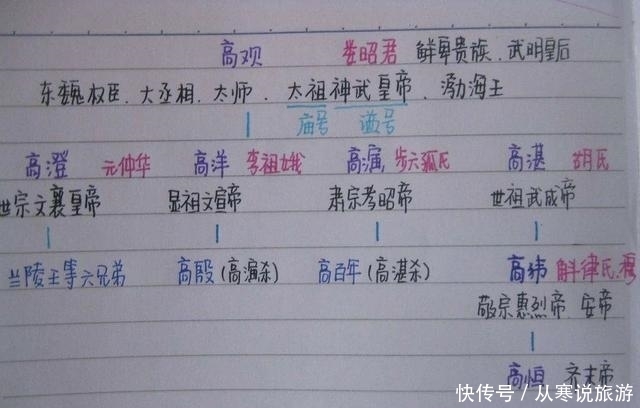 高观 娄昭君 鲜卑贵族、武明皇后
东魏权臣、大丞相、太师、太祖神武皇帝、渤海王
庙号 谥号
高澄 元仲华 高洋 李祖娥 高演 步六孤氏 高湛 胡氏
世宗文襄皇帝 显祖文宣帝 肃宗孝昭帝 世祖武成帝
兰陵王等六兄弟 高殷(高演杀) 高百年(高湛杀) 高纬 斛律氏、穆
敬宗惠烈帝、安帝
高恒 齐丈帝
快传号/从寒说旅游